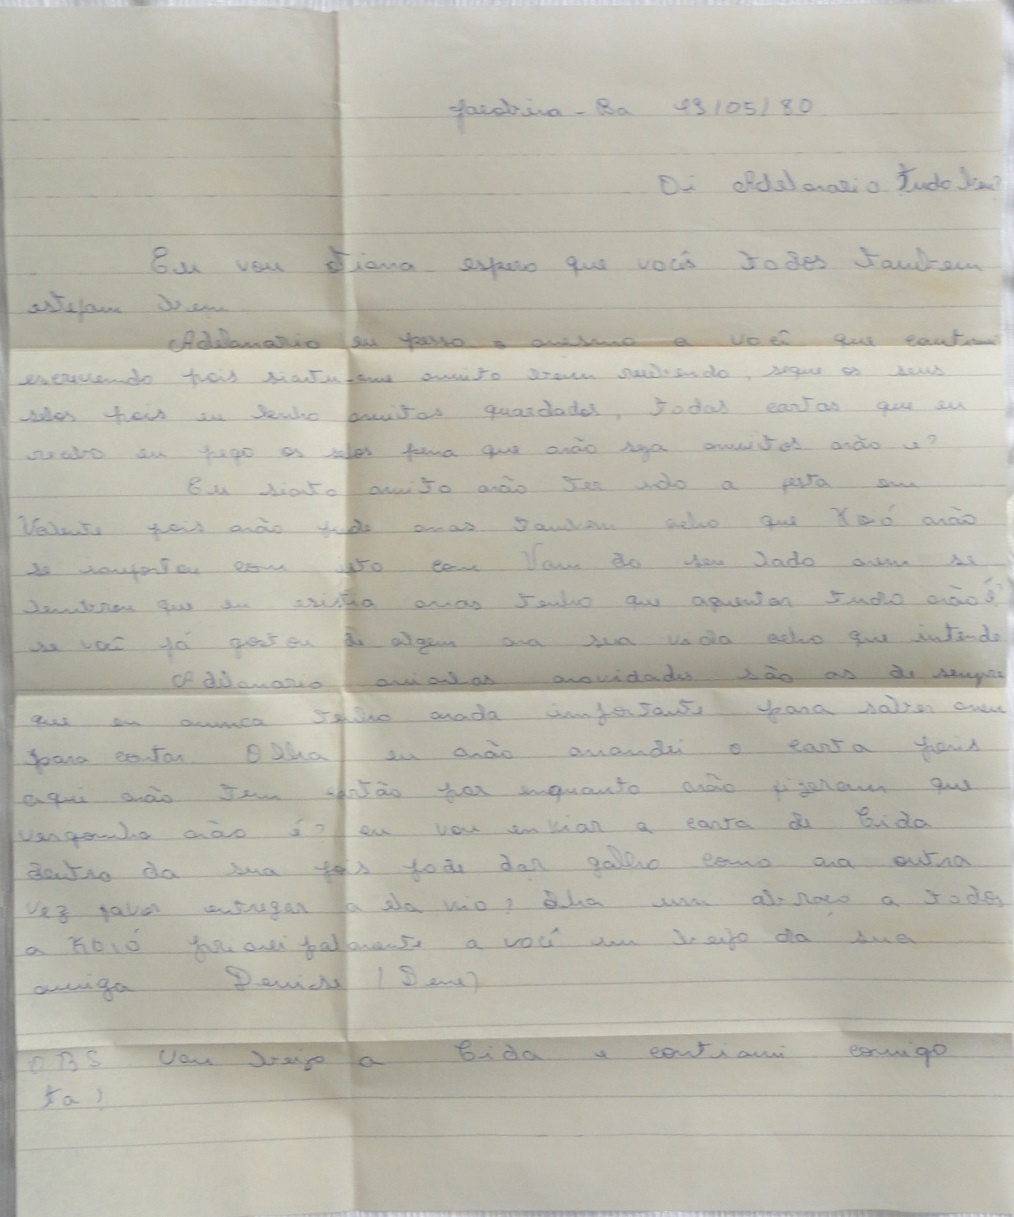 Jacobina - Ba 19/05/80
Oi Adelmario tudo bem?
Eu vou ótima espero que vocês todos tambem
estejam bem
Adelmario eu passo o mesmo a você que continui
escrevendo pois sintu-me muito bem recebendo, segue os seus
selos pois eu tenho muitos guardados, todas cartas que eu
recebo eu pego os selos pena que não seja muitos não e?
Eu sinto muito não ter ido a festa em
Valente pois não pude mas tambem acho que Koió não
se importou com isto com Vam do seu lado nem se
lembrou que eu existia mas tenho que aguentar tudo não é?
se você já gostou de algem na sua vida acho que intende
Adelmario minhas novidades são as de sempre
que eu nunca tenho nada importante para saber nem
para contar. Olha eu não mandei o carta pois
aqui não tem cartão por enquanto não fizeram que
vergonha não é? eu vou enviar a carta de Cida
dentro da sua pois pode dar galho como na outra
vez favor entregar a ela viu? Olha um abraço a todos
a KOIÓ principalmente a você um beijo da sua
amiga Denise (Dene)
OBS Vau beijo a Cida e continui comigo
ta?